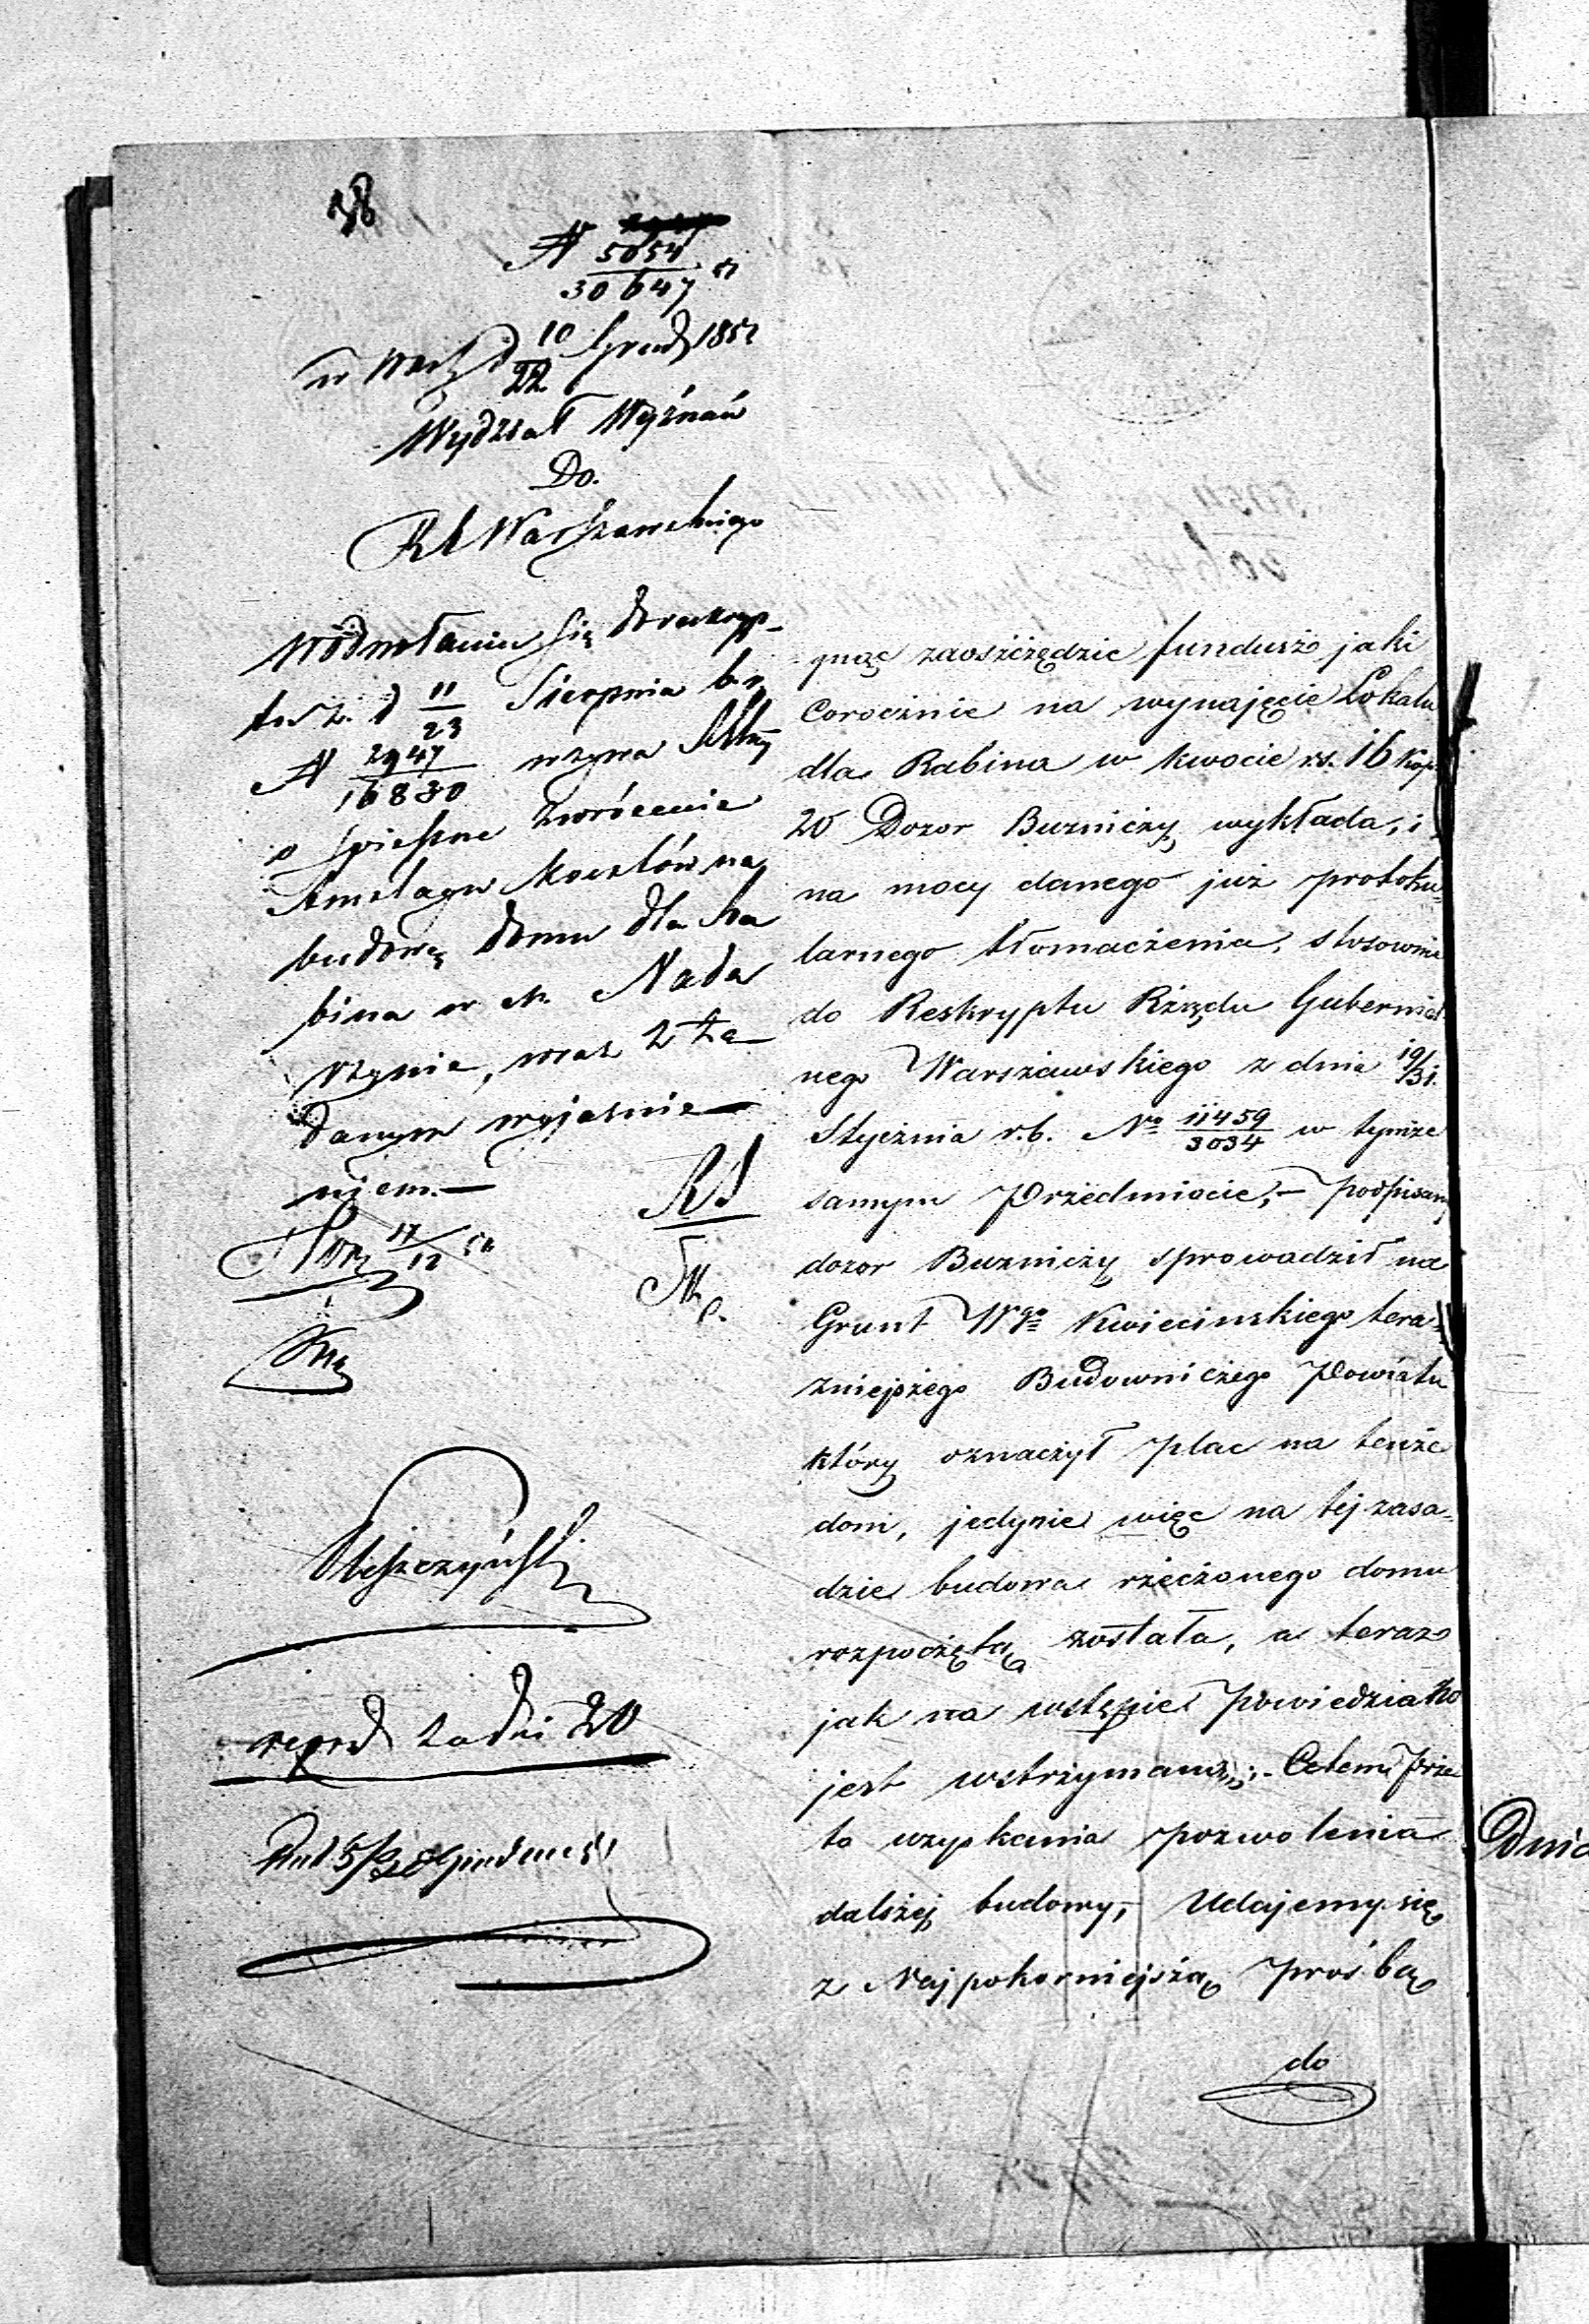 38
N 5054
30647
w Warsz d 10/22 Grud 1851
Wydział Wyznań
Do.
RG Warszawskiego
W odwołaniu się do reskryp-
tu z d 11/23 Sierpnia b.r.
N 2947/16830 wzywa
o spieszne zwrócenie
Anszlagu kosztów na
budowę domu dla Ra
bina w m. Nada
rzynie, wraz z żą
danym wyjaśnie
niem.—
RS
17/12
repr d Zadki 20
gnąc zaoszczędzic fundusz jaki
Corocznie na wynajęcie Lokalu
dla Rabina w kwocie rs. 16 kop
20 Dozor Buzniczy wykłada, i
na mocy danego już protoku=
larnego tłomaczenia, stosownie
do Reskryptu Rządu Gubernial
nego Warszawskiego z dnia 19/31.
Stycznia r.b. No 11459/3034 w tymże
samym Przedmiocie,- podpisany
dozor Buzniczy sprowadził na
Grunt Wgo Kwiecinskiego tera=
zniejszego Budowniczego Powiatu
który oznaczył plac na tenże
dom, jedynie więc na tej zasa=
dzie budowa rzeczonego domu
rozpoczętą została, a teraz
jak na wstępie powiedziano
jest wstrzymaną;- Celem prze
to uzyskania pozwolenia
dalszej budowy,- Udajemy się
z Najpokorniejszą prośbą
do
Dnia